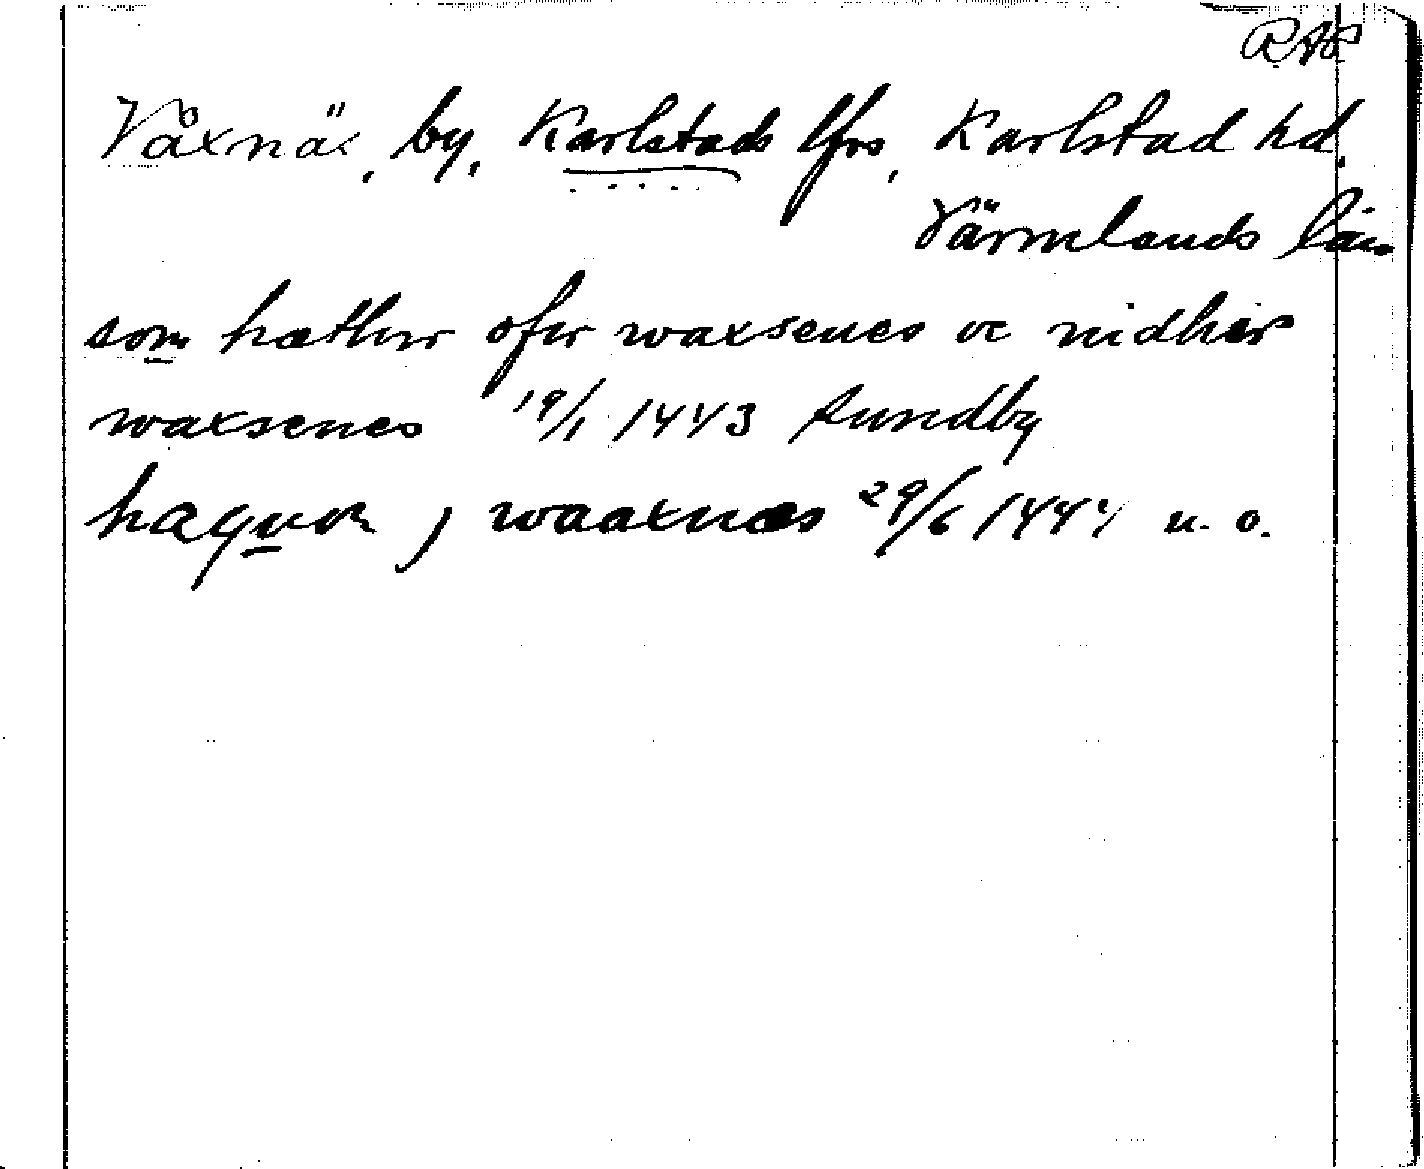 RAP
Våxnäs, by, Karlstads lfrs, Karlstad hd.
Värmlands län
som hæther ofer waxsenes oc nidher
waxsenes 19/1 1443 Sundby
haquon j waaxnæs 29/6 1444 u. o.